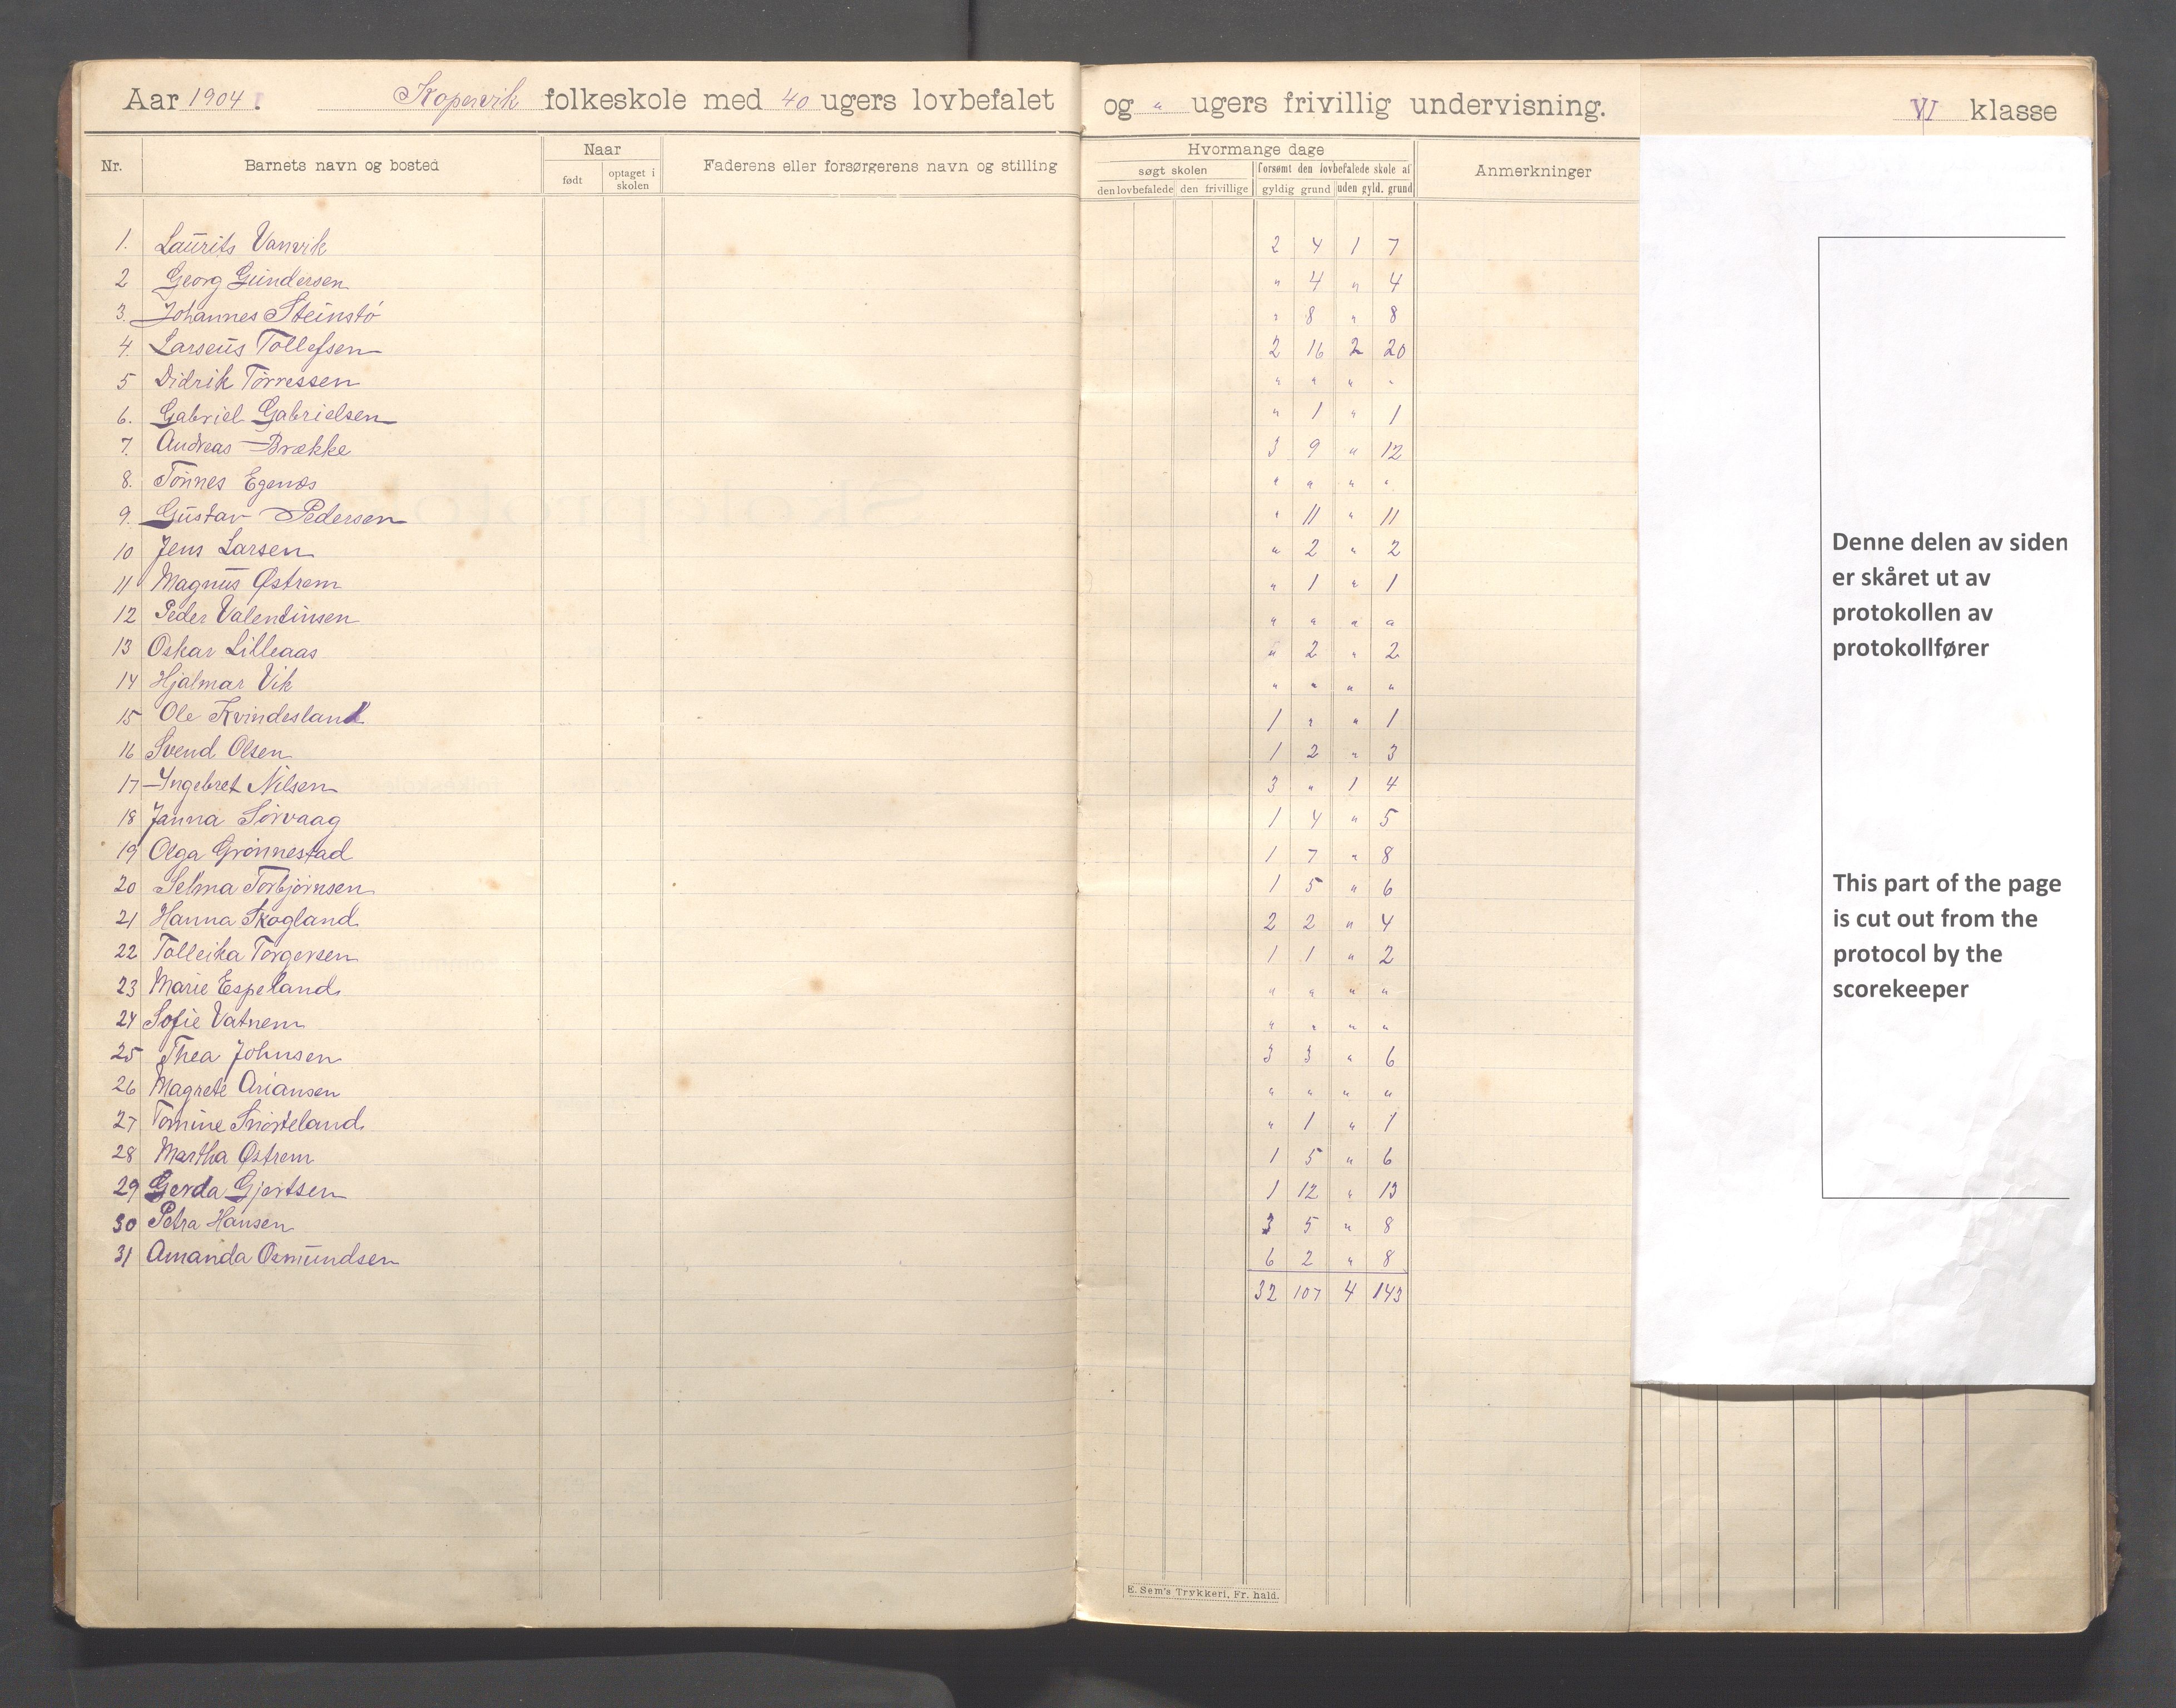 Aar 1904. Kopervik folkeskole med 40 ugers lovbefalet og " ugers frivillig undervisning. VI klasse
Nr. Barnets navn og bosted Naar født optaget i skolen Faderens eller forsørgerens navn og stilling Hvormange dage søgt skolen den lovbefalede den frivillige forsømt den lovbefalede skole af gyldig grund uden gyld. grund Anmerkninger
1. Laurits Vanvik 2 4 1 7
2 Georg Gundersen " 4 " 4
3. Johannes Steinstø " 8 " 8
4. Larseus Tollefsen 2 16 2 20
5 Didrik Tørressen " " " "
6. Gabriel Gabrielsen " 1 " 1
7. Andreas Brække 3 9 " 12
8. Tønnes Egenæs " " " "
9. Gustav Pedersen " 11 " 11
10 Jens Larsen " 2 " 2
11 Magnus Østrem " 1 " 1
12 Peder Valentinsen " " " "
13 Oskar Lilleaas " 2 " 2
14 Hjalmar Vik " " " "
15 Ole Kvindesland 1 " " 1
16 Svend Olsen 1 2 " 3
17 Yngebret Nilsen 3 " 1 4
18 Janna Sørvaag 1 4 " 5
19 Olga Grønnestad 1 7 " 8
20 Selma Torbjørnsen 1 5 " 6
21 Hanna Skogland 2 2 " 4
22 Tolleika Torgersen 1 1 " 2
23 Marie Espeland " " " "
24 Sofie Vatnem " " " "
25 Thea Johnsen 3 3 " 6
26 Magrete Ariansen " " " "
27 Tomine Snørteland " 1 " 1
28 Martha Østrem 1 5 " 6
29 Gerda Gjertsen 1 12 " 13
30 Petra Hansen 3 5 " 8
31 Amanda Osmundsen 6 2 " 8
32 107 4 143
E. Sem's Trykkeri, Fr. hald.
Denne delen av siden
er skåret ut av
protokollen av
protokollfører
This part of the page
is cut out from the
protocol by the
scorekeeper